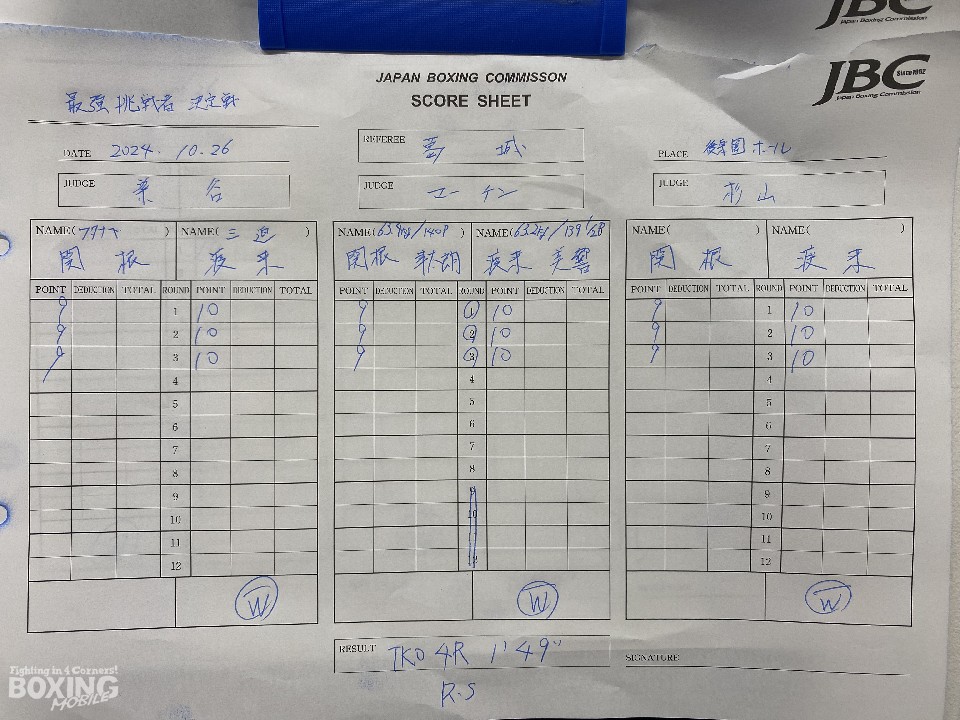 JBC
Japan Boxing Commission
JBC Since 1952
Japan Boxing Commission
JAPAN BOXING COMMISSON
SCORE SHEET
最強挑戦者決定戦
DATE 2024. 10. 26
REFEREE 葛城
PLACE 後楽園ホール
JUDGE 染谷
JUDGE マーチン
JUDGE 杉山
NAME( ) NAME(三迫)
関根
NAME(63.4kg/140P) NAME(63.2kg/139 1/2P)
関根
NAME( ) NAME( )
関根
POINT DEDUCTION TOTAL ROUND POINT DEDUCTION TOTAL
9 1 10
9 2 10
9 3 10
4
5
6
7
8
9
10
11
12
W
POINT DEDUCTION TOTAL ROUND POINT DEDUCTION TOTAL
9 1 10
9 2 10
9 3 10
4
5
6
7
8
10
W
POINT DEDUCTION TOTAL ROUND POINT DEDUCTION TOTAL
9 1 10
9 2 10
9 3 10
4
5
6
7
8
9
10
11
12
W
RESULT TKO 4R 1'49"
R.S
SIGNATURE
Fighting in 4 Corners!
BOXING
MOBILE